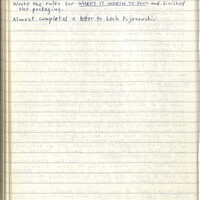 Wrote the rules for WHAT'S IT WORTH TO YOU? and finished
the packaging.
Almost completed a letter to Lech Pijanowski.